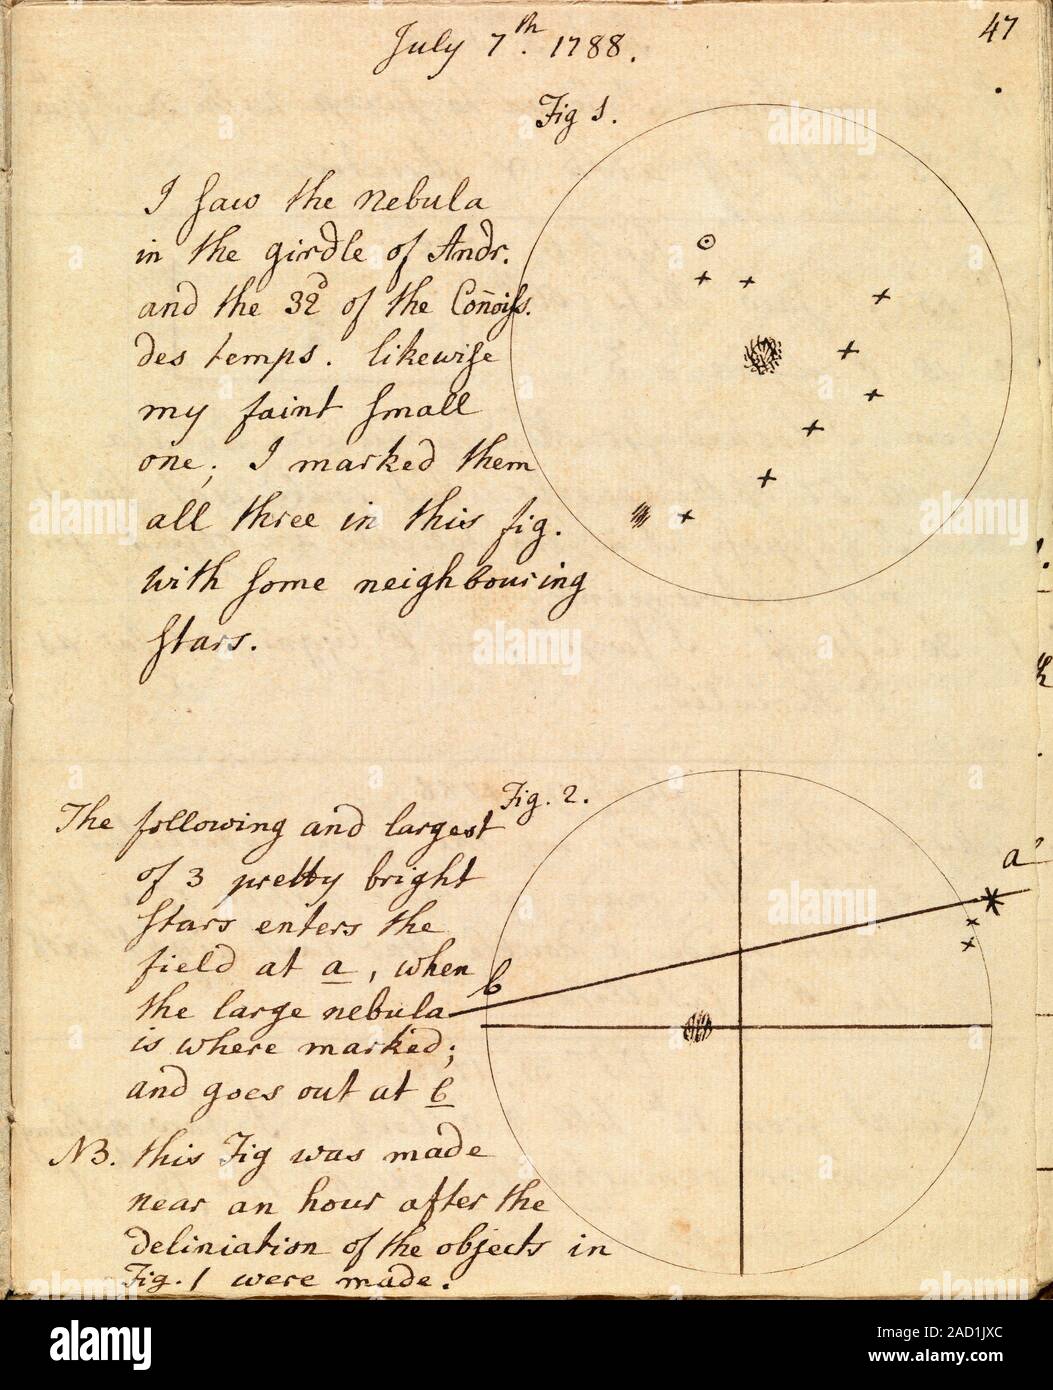 July 7th. 1788.
47
Fig 1.
I saw the nebula
in the girdle of Andr.
and the 32d of the Con̄oiss.
des temps. likewise
my faint small
one; I marked them
all three in this fig.
with some neighbouring
stars.
Fig. 2.
The following and largest
of 3 pretty bright
stars enters the
field at a, when
the large nebula
is where marked;
and goes out at b
NB. this Fig was made
near an hour after the
deliniation of the objects in
Fig. 1 were made.
a
b
alamy
Image ID: 2AD1JXC
www.alamy.com